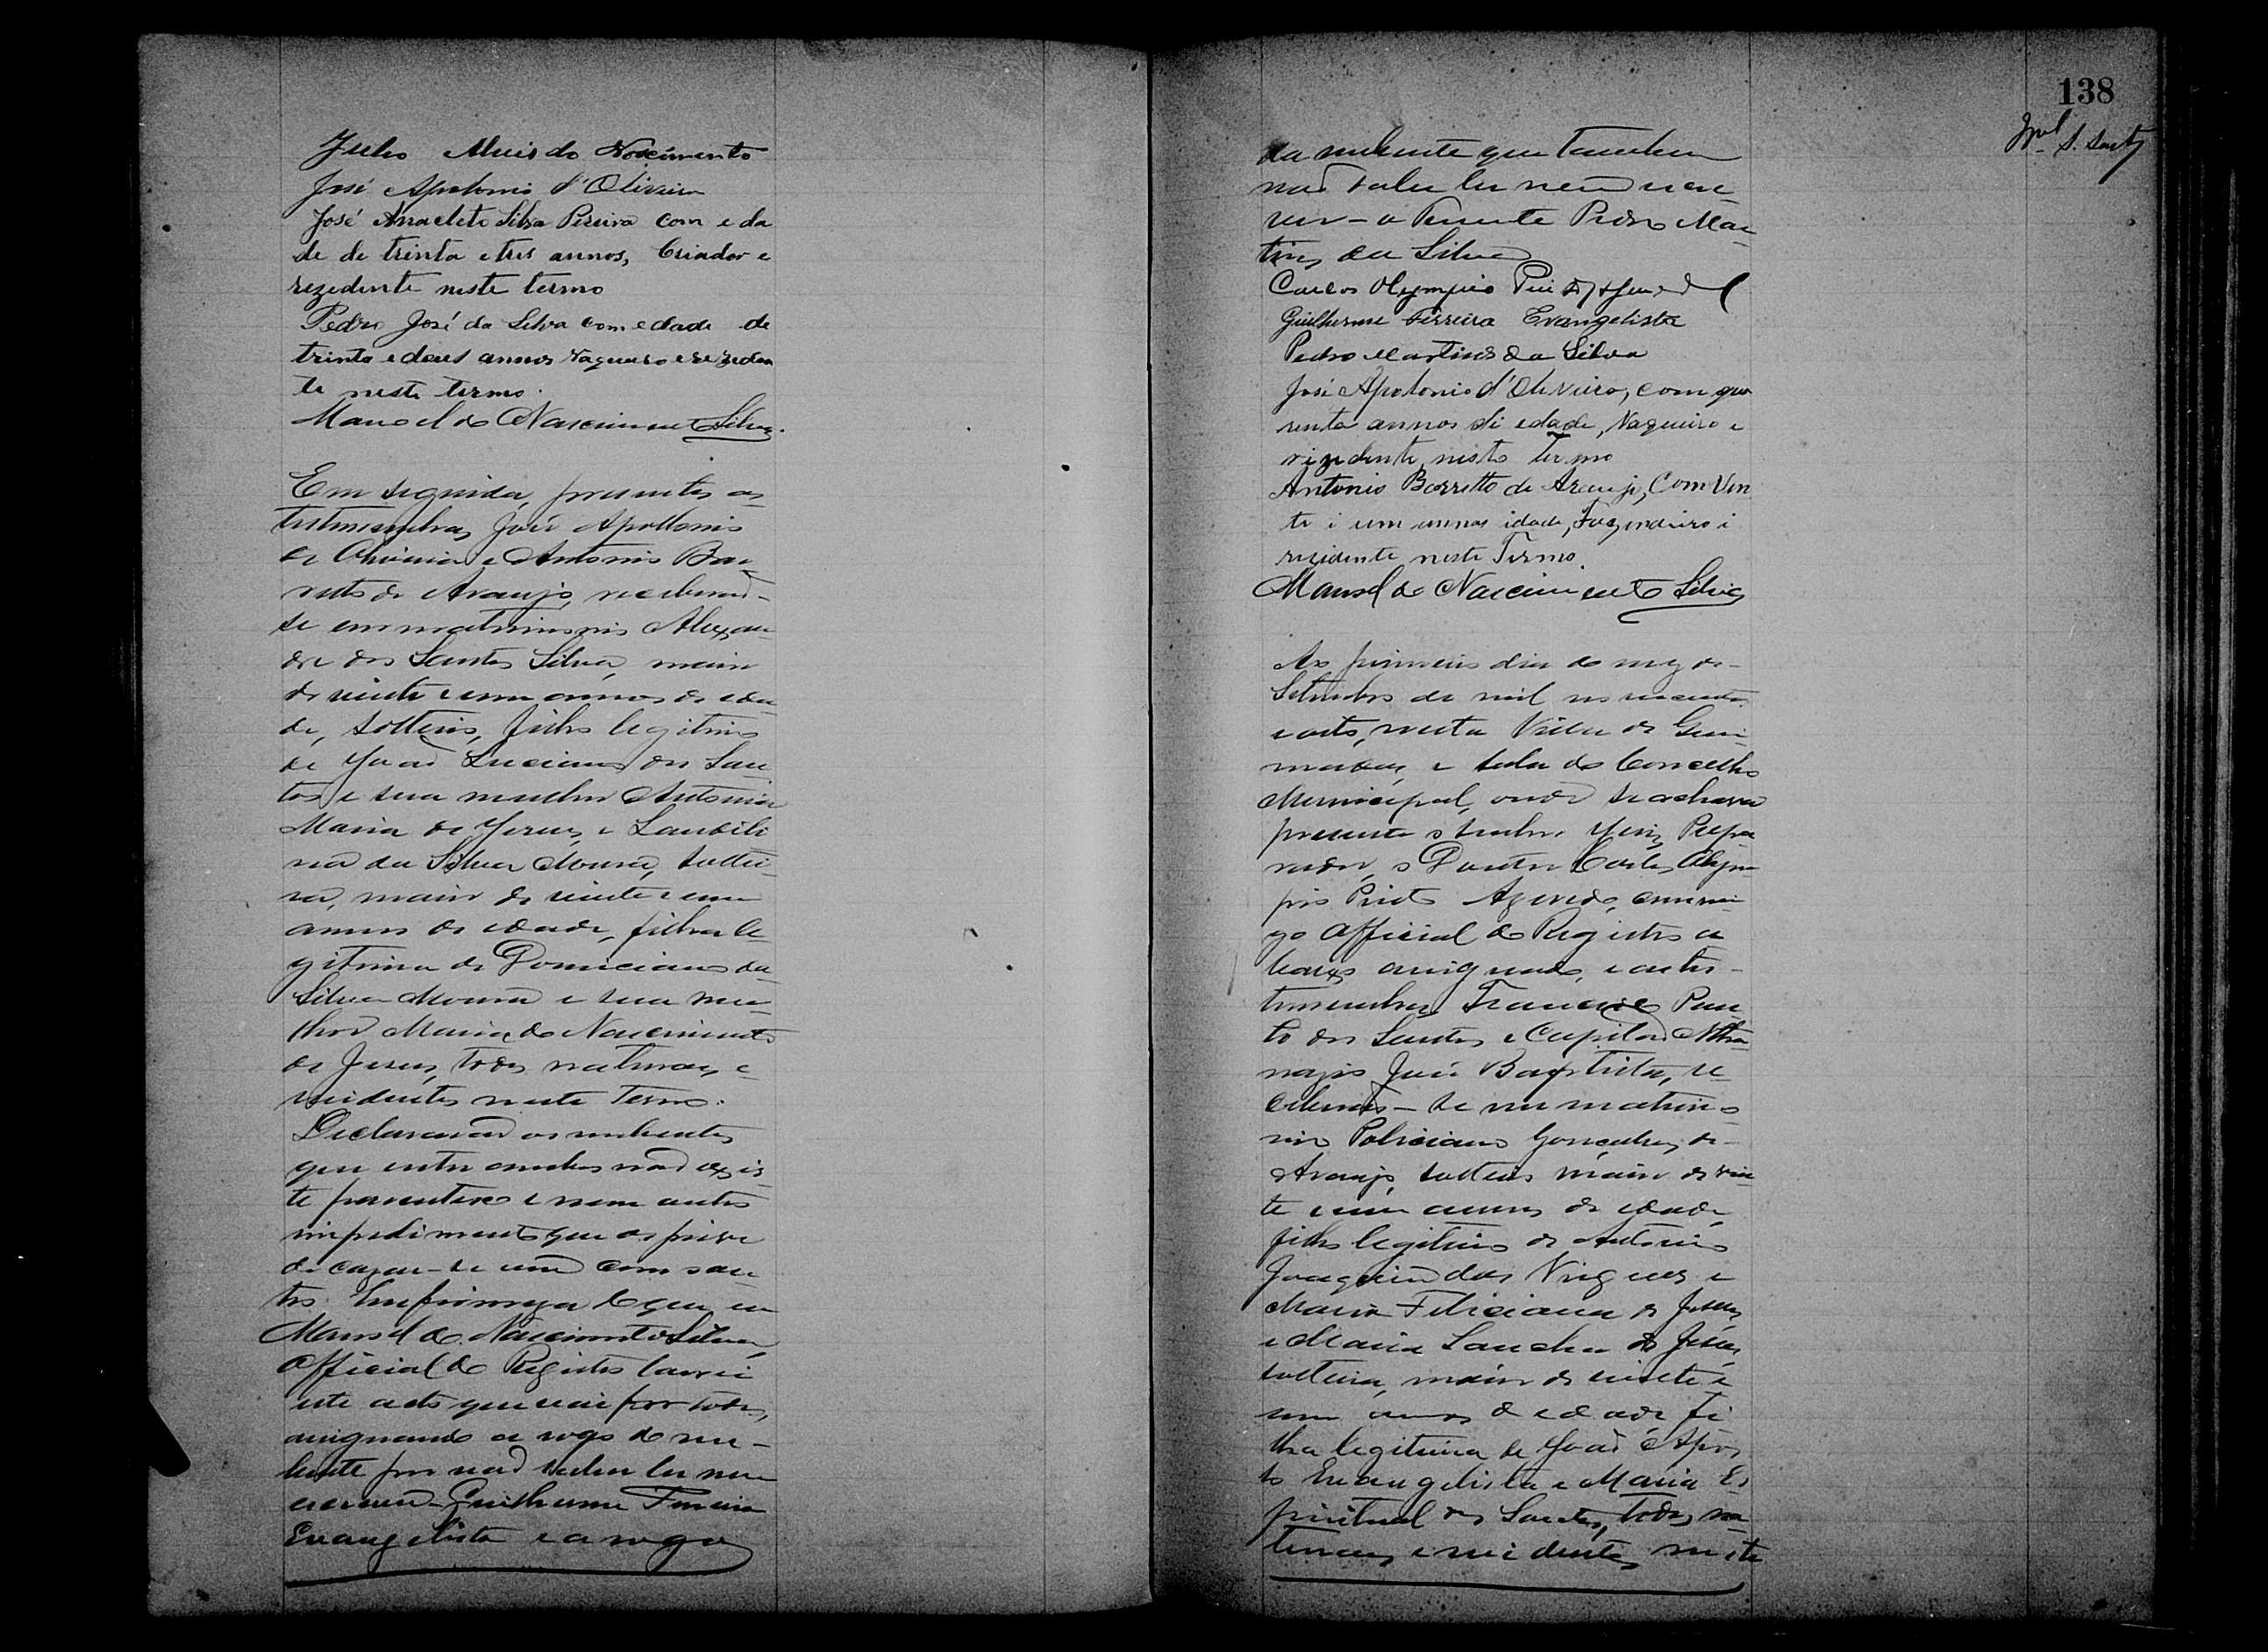 Julio Aluis do Nascimento
José Apolonio d'Oliveira
José Anacleto Silva Pereira com eda
de de trinta e tres annos, Criador e
rezedente neste termo
Pedro José da Silva com edade de
trinta e dous annos Vaqueiro e rezeden
te neste termo.
Manoel do Nascimento Silva.
Em seguida, presentes as
testemunhas José Apollonio
de Oliveira e Antonio Bar-
retto de Araujo, receberão-
se em matrimonio Alexan-
dre dos Santos Silva, maior
de vinte e um annos de eda
de, solteiro, filho legitimo
de João Luciano dos San
tos e sua mulher Antonia
Maria de Jesus, e Laudili
na da Silva Moura, soltei-
ra, maior de vinte e um
annos de edade, filha le-
gitima de Domiciano da
Silva Moura e sua mu-
lher Maria do Nascimento
de Jesus, todos naturaes e
residentes neste Termo.
Declararão os nubentes
que entre ambos não exis
te parentesco e nem outro
impedimento que os prive
de cazar-se um com ou
tro. Em firmeza do que eu
Manoel do Nascimento Silva,
Official do Registro lavrei
este acto que vai por todos,
assignando a rogo do nu-
bente por não saber ler nem
escrever Guilherme Ferreira
Evangelista e a rogo
138
da nubente que tambem
não sabe ler nem escre-
ver - o Tenente Pedro Mar
tins da Silva
Carlos Olympio Pinto de Azevedo
Guilherme Ferreira Evangelista
Pedro Martins da Silva
José Apolonio d'Oliveira, com qua
renta annos di edade, Vaqueiro e
rizidente neste Termo
Antonio Barretto de Araujo, Com Vin
te i um annos idade, Fazendeiro i
rezidente neste Termo.
Manoel do Nascimento Silva
Ao primeiro dia do mez de
Setembro de mil novecentos
e oito, nesta Villa de
e sala do Concelho
Municipal, onde se achava
presente o senhor Juiz Prepa
rador, o Doutor Carlos Olym
pio Pinto Azevedo, commi
go Official do Registro a
baixo assignado, e as tes-
temunhas Francisco
to dos Santos e Capitão Atha
nazio José Baptista, re
ceberão-se em matrimo
nio Policiano Gonçalves de
Araujo, solteiro maior de vin
te e um annos de edade,
filho legitimo de Antonio
Joaquim das Virgens e
Maria Feliciana de Jesus,
e Maria Sancha de Jesus,
solteira, maior de vinte e
um annos de edade fi
lha legitima de João
to Evangelista e Maria Es
piritual dos Santos, todos na
turaes e residentes neste